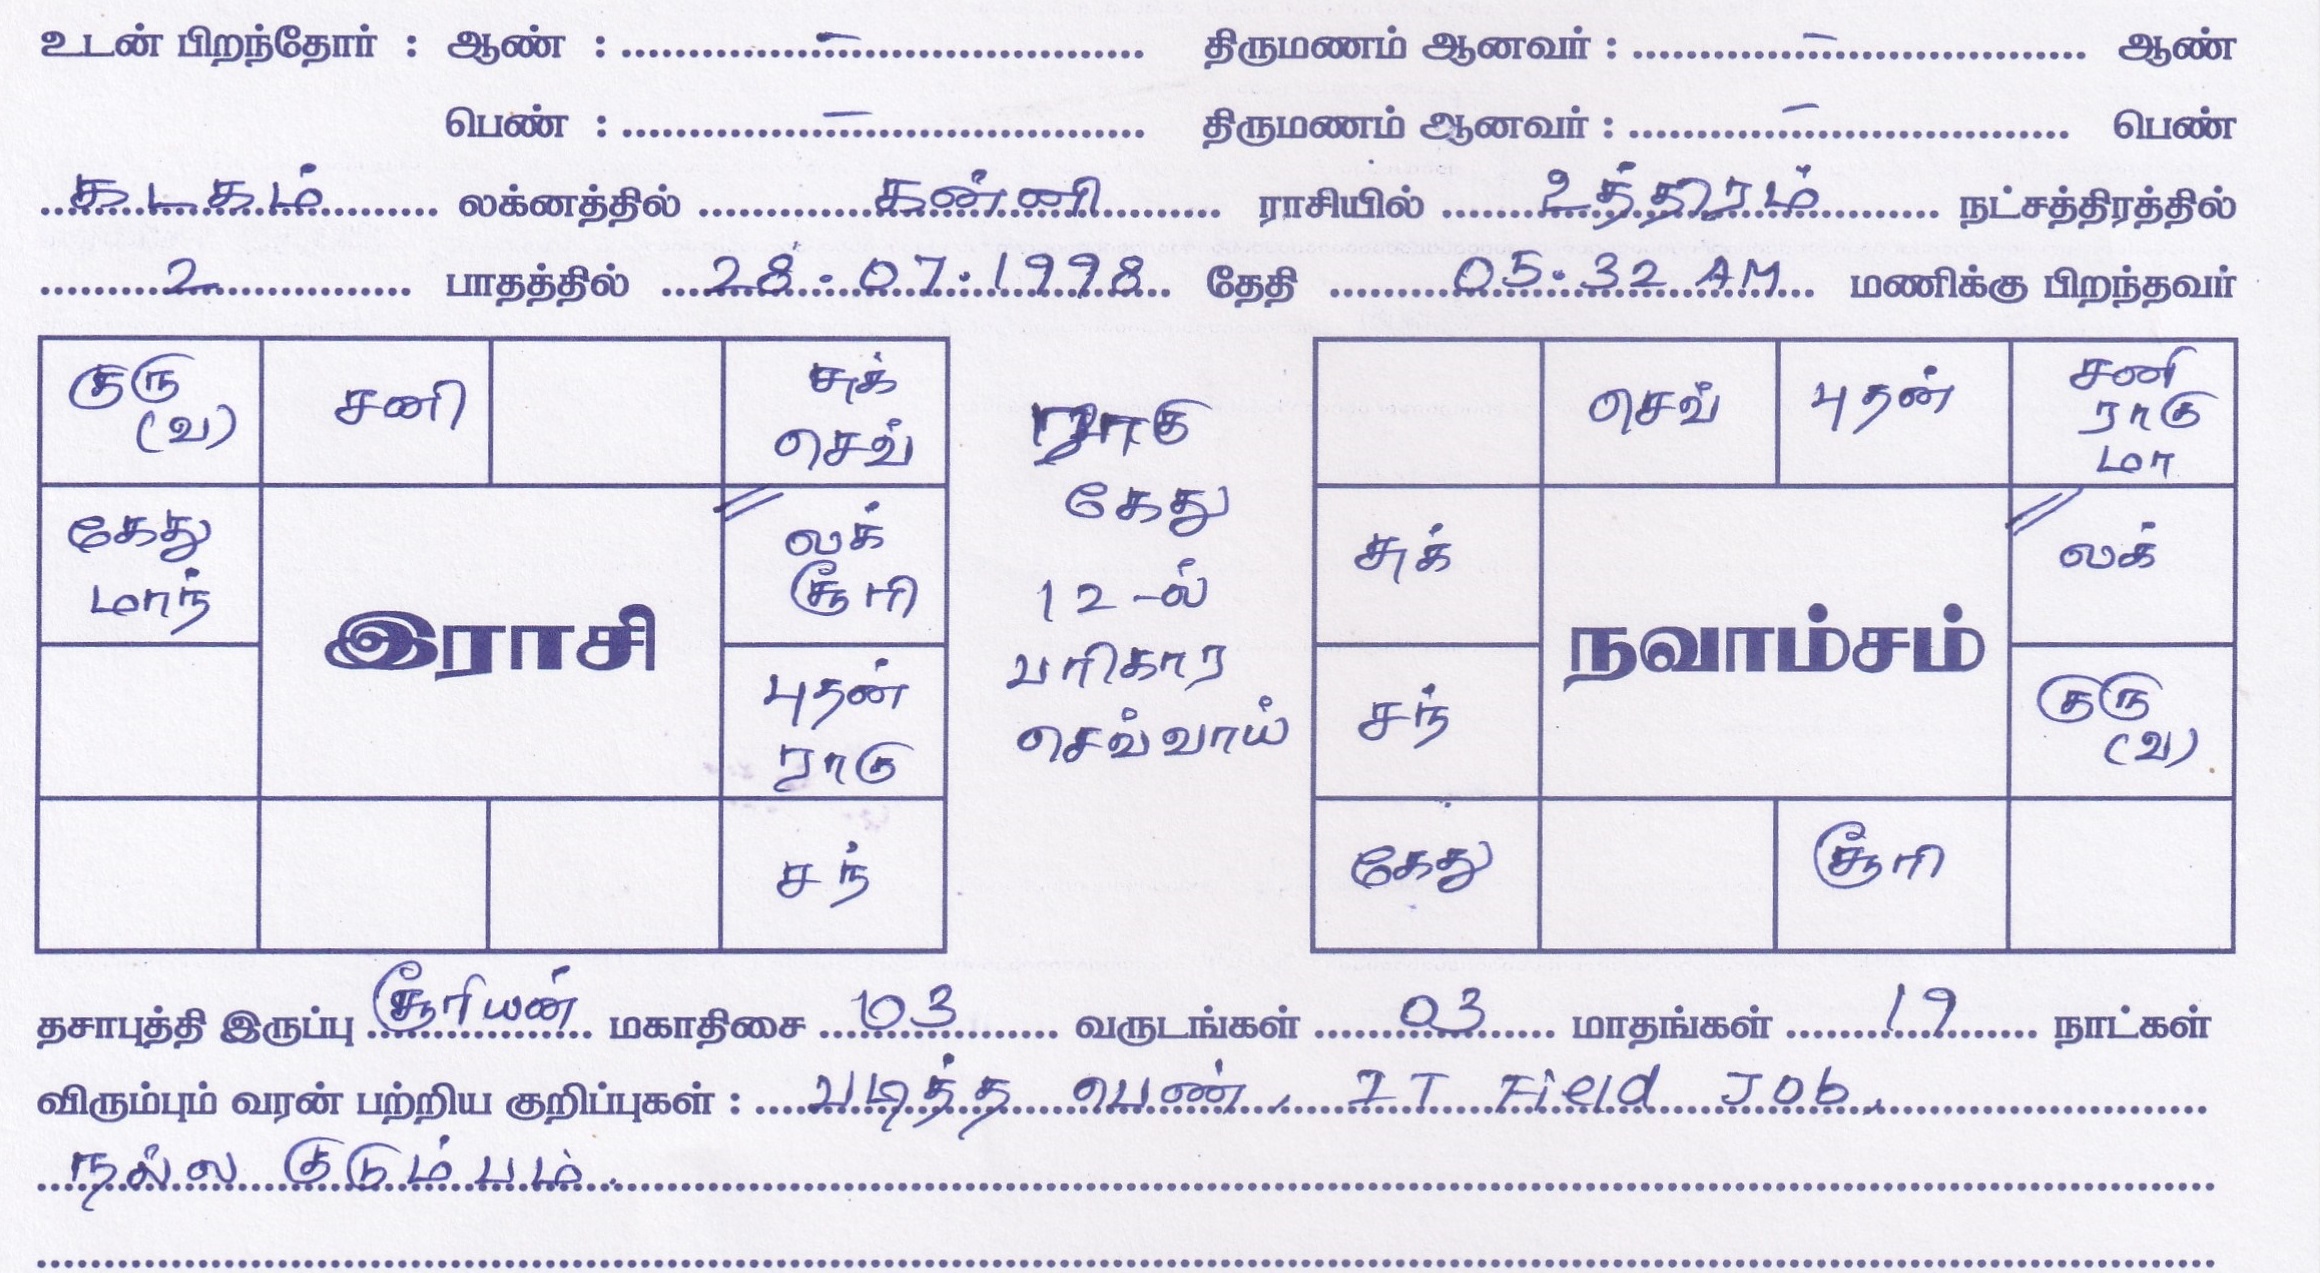 உடன் பிறந்தோர் : ஆண் : ..........–.......... திருமணம் ஆனவர் : ..........–.......... ஆண்
பெண் : ..........–.......... திருமணம் ஆனவர் : ..........–.......... பெண்
கடகம் லக்னத்தில் கன்னி ராசியில் உத்திரம் நட்சத்திரத்தில்
2 பாதத்தில் 28.07.1998 தேதி 05.32 AM மணிக்கு பிறந்தவர்
குரு (வ)
சனி
சுக்
செவ்
கேது
மாந்
இராசி
லக்
சூரி
புதன்
ராகு
சந்
ராகு
கேது
12-ல்
பரிகார
செவ்வாய்
செவ்
புதன்
சனி
ராகு
மா
சுக்
நவாம்சம்
லக்
சந்
குரு
(வ)
கேது
சூரி
தசாபுத்தி இருப்பு சூரியன் மகாதிசை 03 வருடங்கள் 03 மாதங்கள் 19 நாட்கள்
விரும்பும் வரன் பற்றிய குறிப்புகள் : படித்த பெண், IT Field Job,
நல்ல குடும்பம்.